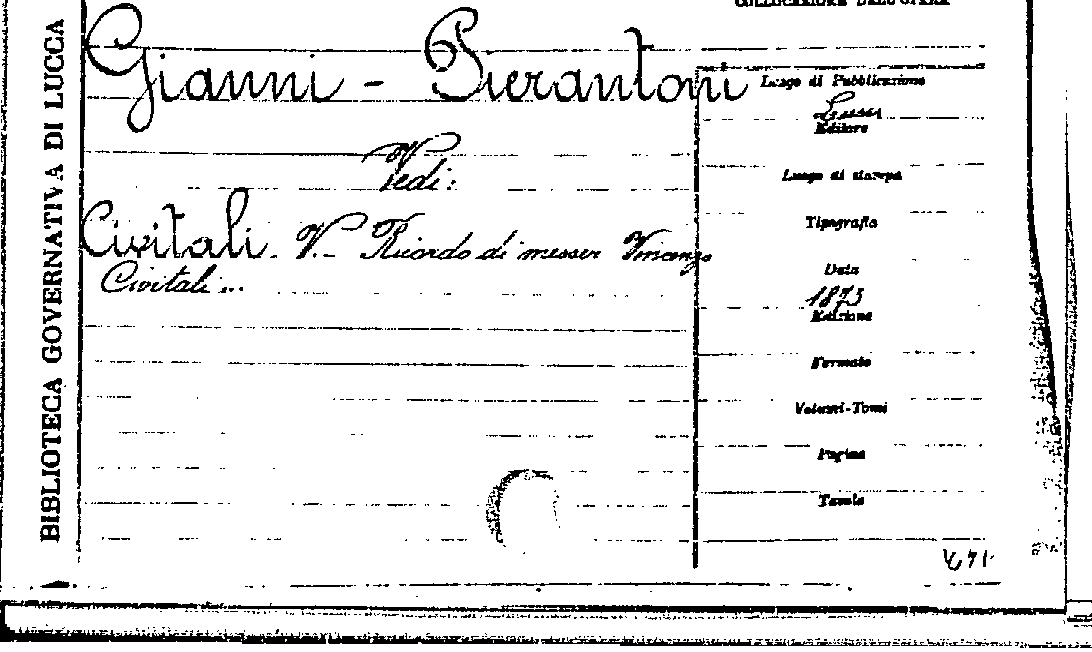 BIBLIOTECA GOVERNATIVA DI LUCCA
COLLOCAZIONE DELL'OPERA
Gianni - Pierantoni
Vedi:
Civitali. V. - Ricordo di messer Vincenzo
Civitali ...
Luogo di Pubblicazione
Lucca
Editore
Luogo di stampa
Tipografia
Data
1873
Edizione
Formato
Volumi-Tomi
Pagine
Tavole